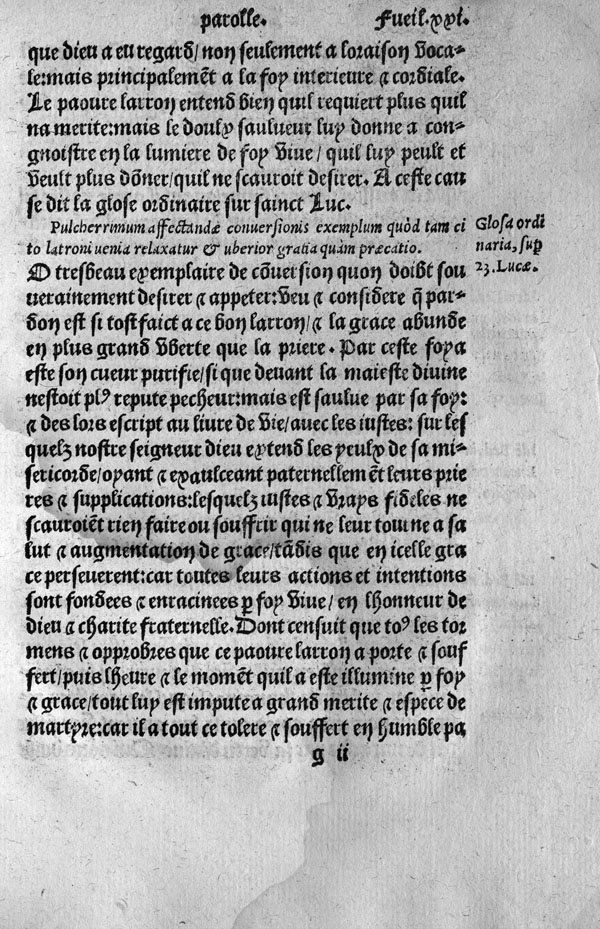 parolle. Fueil.xxi.
que dieu a eu regard/ non seulement a loraison voca-
le:mais principalemẽt a la foy interieure ⁊ cordiale.
Le paoure larron entend bien quil requiert plus quil
na merite:mais le doulx saulueur luy donne a con-
gnoistre en la lumiere de foy viue/ quil luy peult et
veult plus dõner/ quil ne scauroit desirer. A ceste cau
se dit la glose ordinaire sur sainct Luc.
Pulcherrimum affectandæ conuersionis exemplum quòd tam ci
to latroni uenia relaxatur & uberior gratia quàm præcatio.
Glosa ordi
naria, sup̱
23. Lucæ.
O tresbeau exemplaire de cõuersion quon doibt sou
uerainement desirer ⁊ appeter:veu ⁊ considere q̃ par-
don est si tost faict a ce bon larron/ ⁊ la grace abunde
en plus grand vberte que la priere. Par ceste foy a
este son cueur purifie/ si que deuant la maieste diuine
nestoit plꝰ repute pecheur:mais est saulue par sa foy:
⁊ des lors escript au liure de vie/ auec les iustes: sur les
quelz nostre seigneur dieu extend les yeulx de sa mi-
sericorde/ oyant ⁊ exaulceant paternellemẽt leurs prie
res ⁊ supplications:lesquelz iustes ⁊ vrays fideles ne
scauroiẽt rien faire ou souffrir qui ne leur tourne a sa
lut ⁊ augmentation de grace/ tãdis que en icelle gra
ce perseuerent:car toutes leurs actions et intentions
sont fondees ⁊ enracinees ꝑ foy viue/ en lhonneur de
dieu ⁊ charite fraternelle. Dont censuit que toꝰ les tor
mens ⁊ opprobres que ce paoure larron a porte ⁊ souf
fert/ puis lheure ⁊ le momẽt quil a este illumine ꝑ foy
⁊ grace/ tout luy est impute a grand merite ⁊ espece de
martyre:car il a tout ce tolere ⁊ souffert en humble pa
g ii